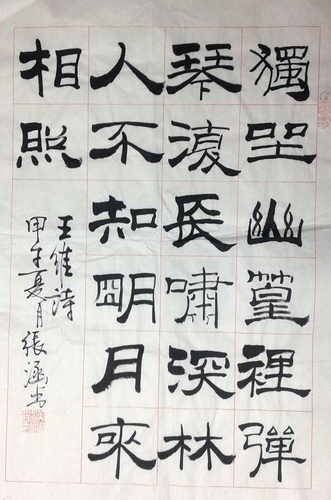 獨坐幽篁裡彈
琴復長嘯深林
人不知明月來
相照
王維詩
甲午夏月張涵书